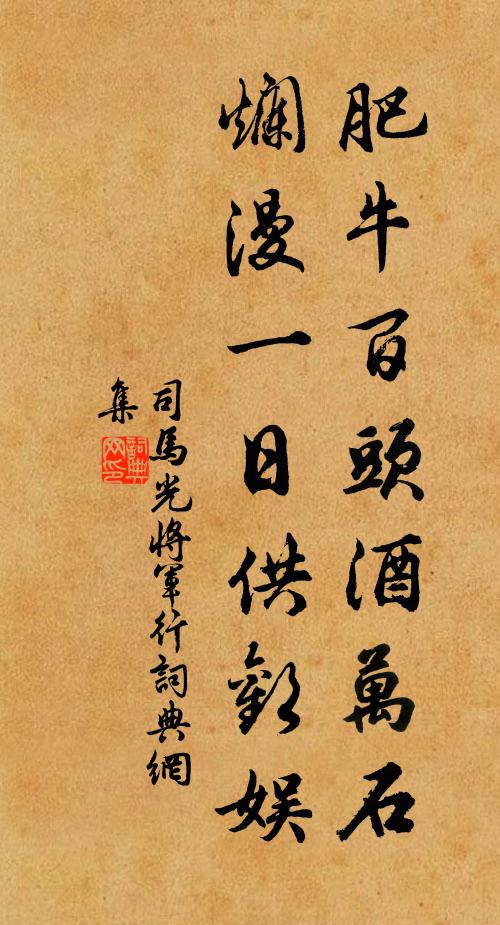 肥牛百頭酒萬石
爛漫一日供歡娛
司馬光將軍行詞典網
集
詞典網印